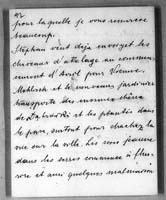 pour laquelle je vous remercie
beaucoup.
Stephan veut déjà envoyer les
chevaux d'attelage au commen-
cement d'Avril pour Vienne.
et le nouveau jardinier
transporte des chênes
de et les plante dans
le parc, surtout pour cacher la
vue sur la ville. Les roses
dans les serres commence à fleu-
rir et ainsi quelques